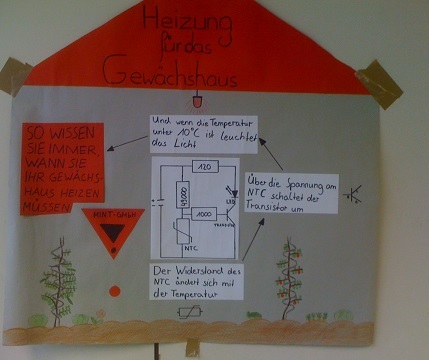 Heizung
für das
Gewächshaus
Und wenn die Temperatur
unter 10°C ist leuchtet
das Licht
SO WISSEN
SIE IMMER,
WANN SIE
IHR GEWÄCHS-
HAUS HEIZEN
MÜSSEN
MINT-GmbH
120
47000
LED
1000
TRANSISTOR
NTC
Über die Spannung am
NTC schaltet der
Transistor um
Der Widerstand des
NTC ändert sich mit
der Temperatur